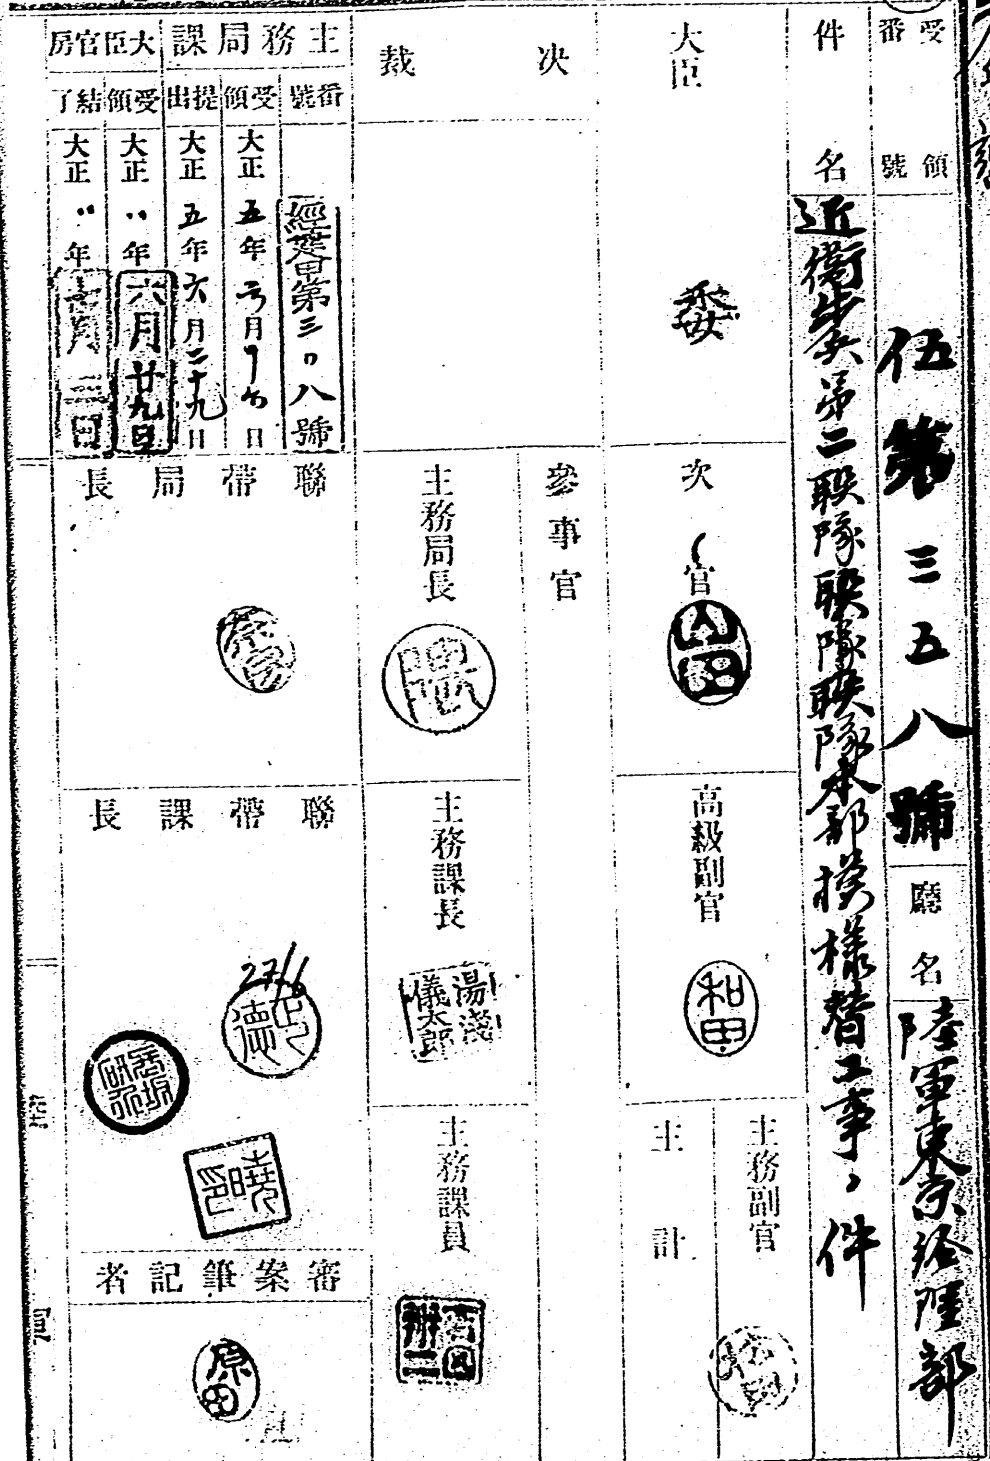 受領番號
伍第三五八號
廳名
陸軍東京經理部
件名
近衛歩兵第二聯隊聯隊聯隊本部模様替工事ノ件
大臣
委
次官
高級副官
和田
主務副官
主計
決裁
參事官
主務局長
主務課長
湯淺儀太郎
主務課員
主務局課
番號
經建甲第三〇八號
受領
大正五年六月 日
提出
大正五年六月二十九日
大臣官房
受領
大正〃年六月廿九日
結了
大正〃年七月三日
聯帶局長
聯帶課長
27/6
審案筆記者
原田